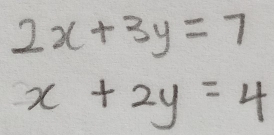 2x+3y=7
x+2y=4